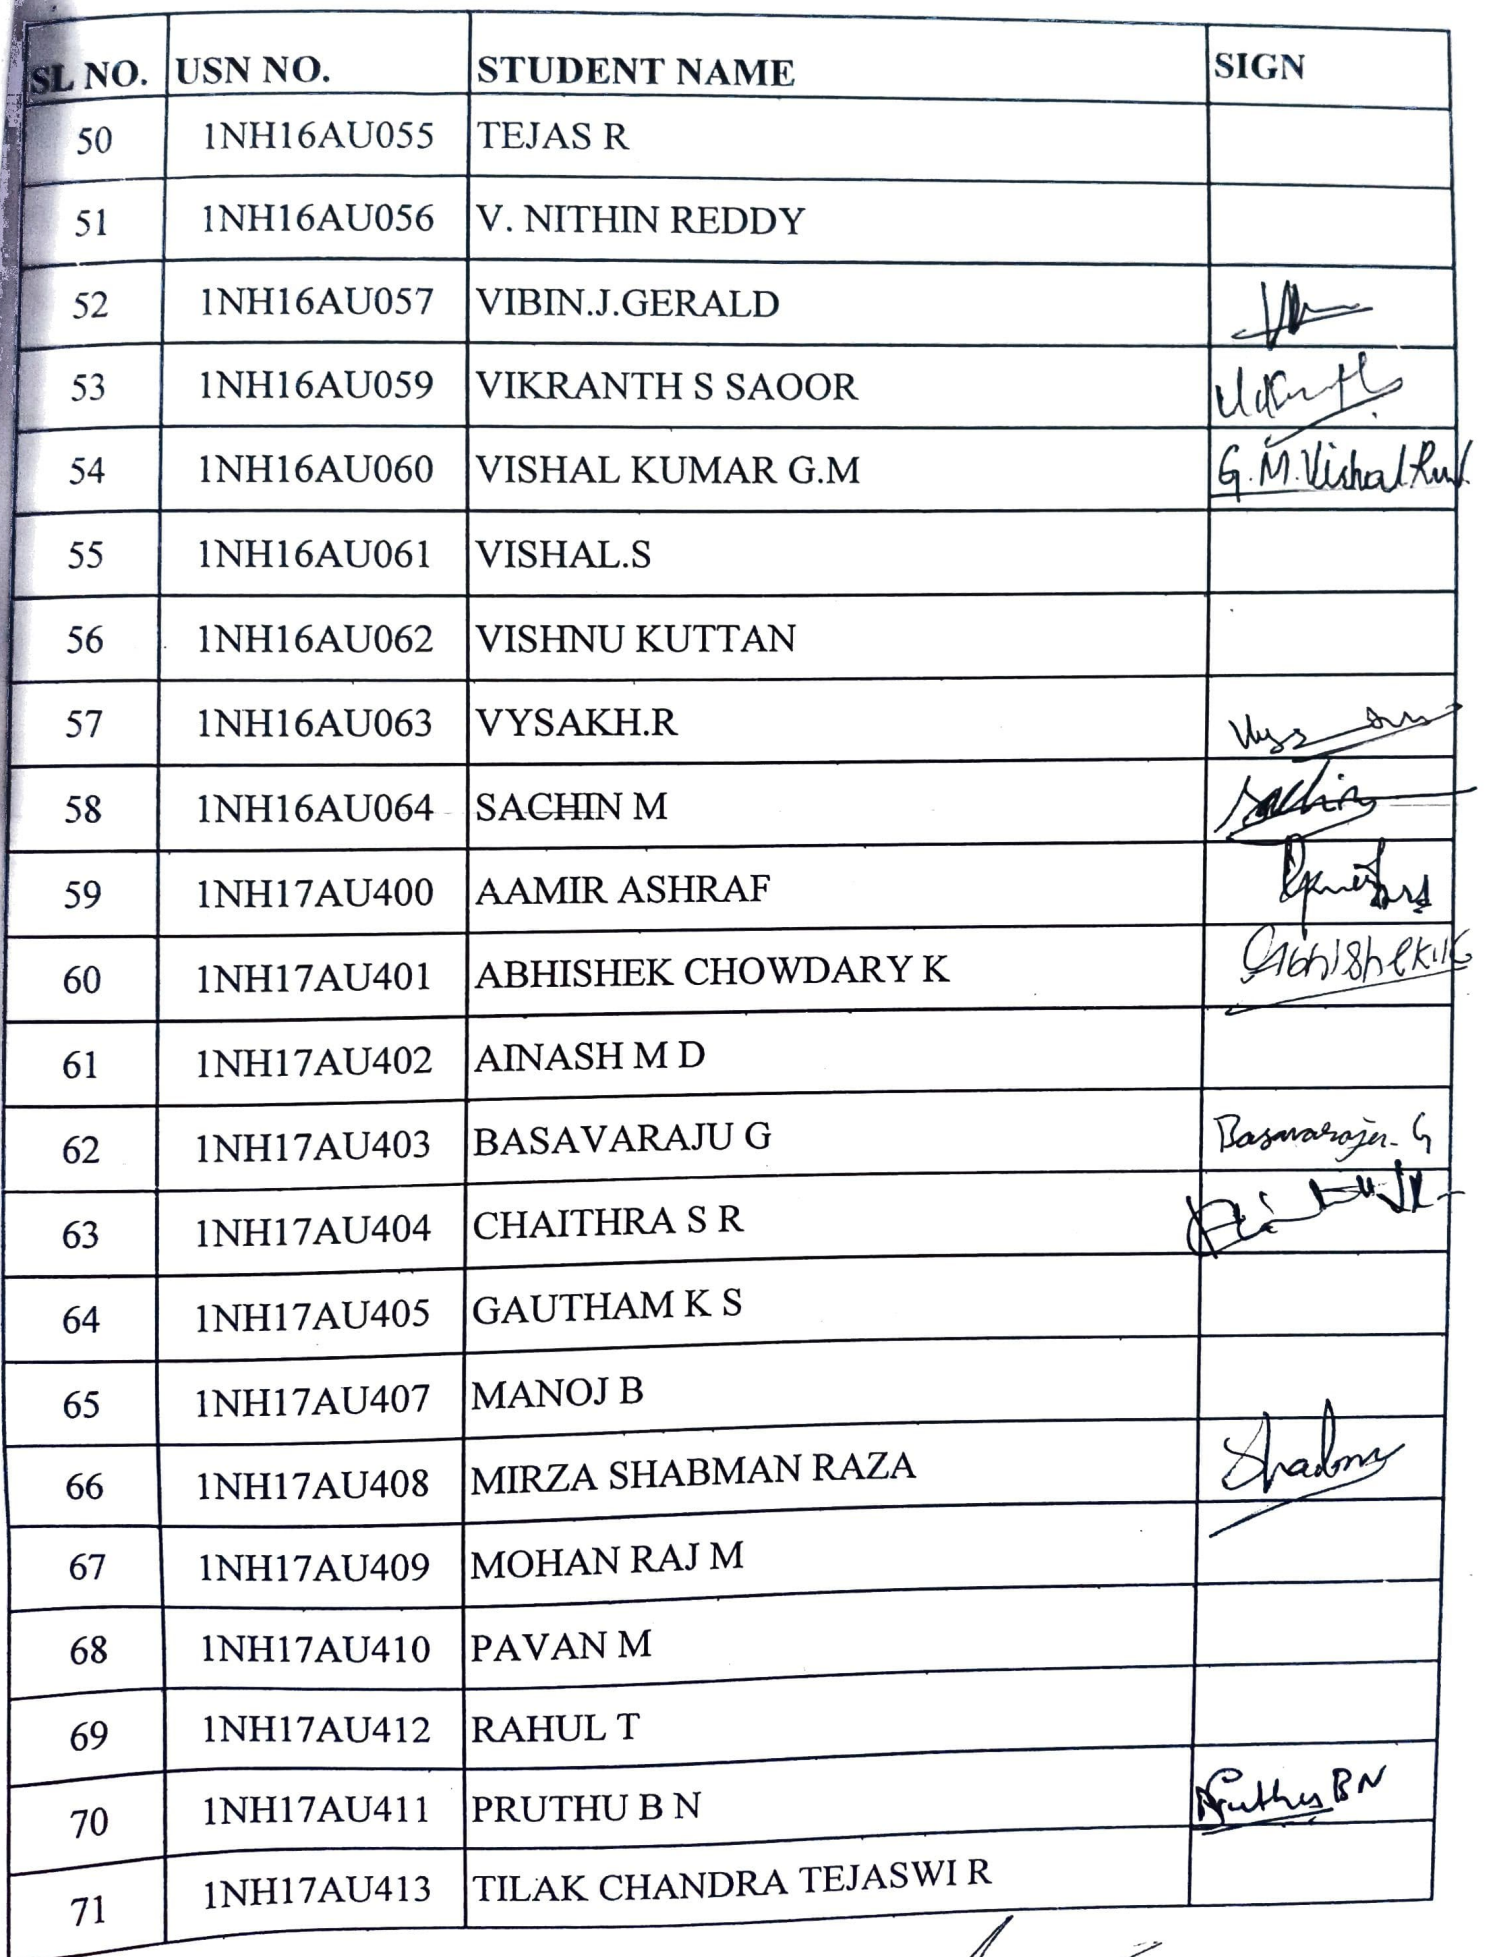 SL NO. USN NO. STUDENT NAME SIGN
50 1NH16AU055 TEJAS R
51 1NH16AU056 V. NITHIN REDDY
52 1NH16AU057 VIBIN.J.GERALD
53 1NH16AU059 VIKRANTH S SAOOR
54 1NH16AU060 VISHAL KUMAR G.M G.M.Vishal
55 1NH16AU061 VISHAL.S
56 1NH16AU062 VISHNU KUTTAN
57 1NH16AU063 VYSAKH.R
58 1NH16AU064 SACHIN M Sachin
59 1NH17AU400 AAMIR ASHRAF
60 1NH17AU401 ABHISHEK CHOWDARY K Abhishek
61 1NH17AU402 AINASH M D
62 1NH17AU403 BASAVARAJU G Basavaraju. G
63 1NH17AU404 CHAITHRA S R
64 1NH17AU405 GAUTHAM K S
65 1NH17AU407 MANOJ B
66 1NH17AU408 MIRZA SHABMAN RAZA
67 1NH17AU409 MOHAN RAJ M
68 1NH17AU410 PAVAN M
69 1NH17AU412 RAHUL T
70 1NH17AU411 PRUTHU B N Pruthu B N
71 1NH17AU413 TILAK CHANDRA TEJASWI R